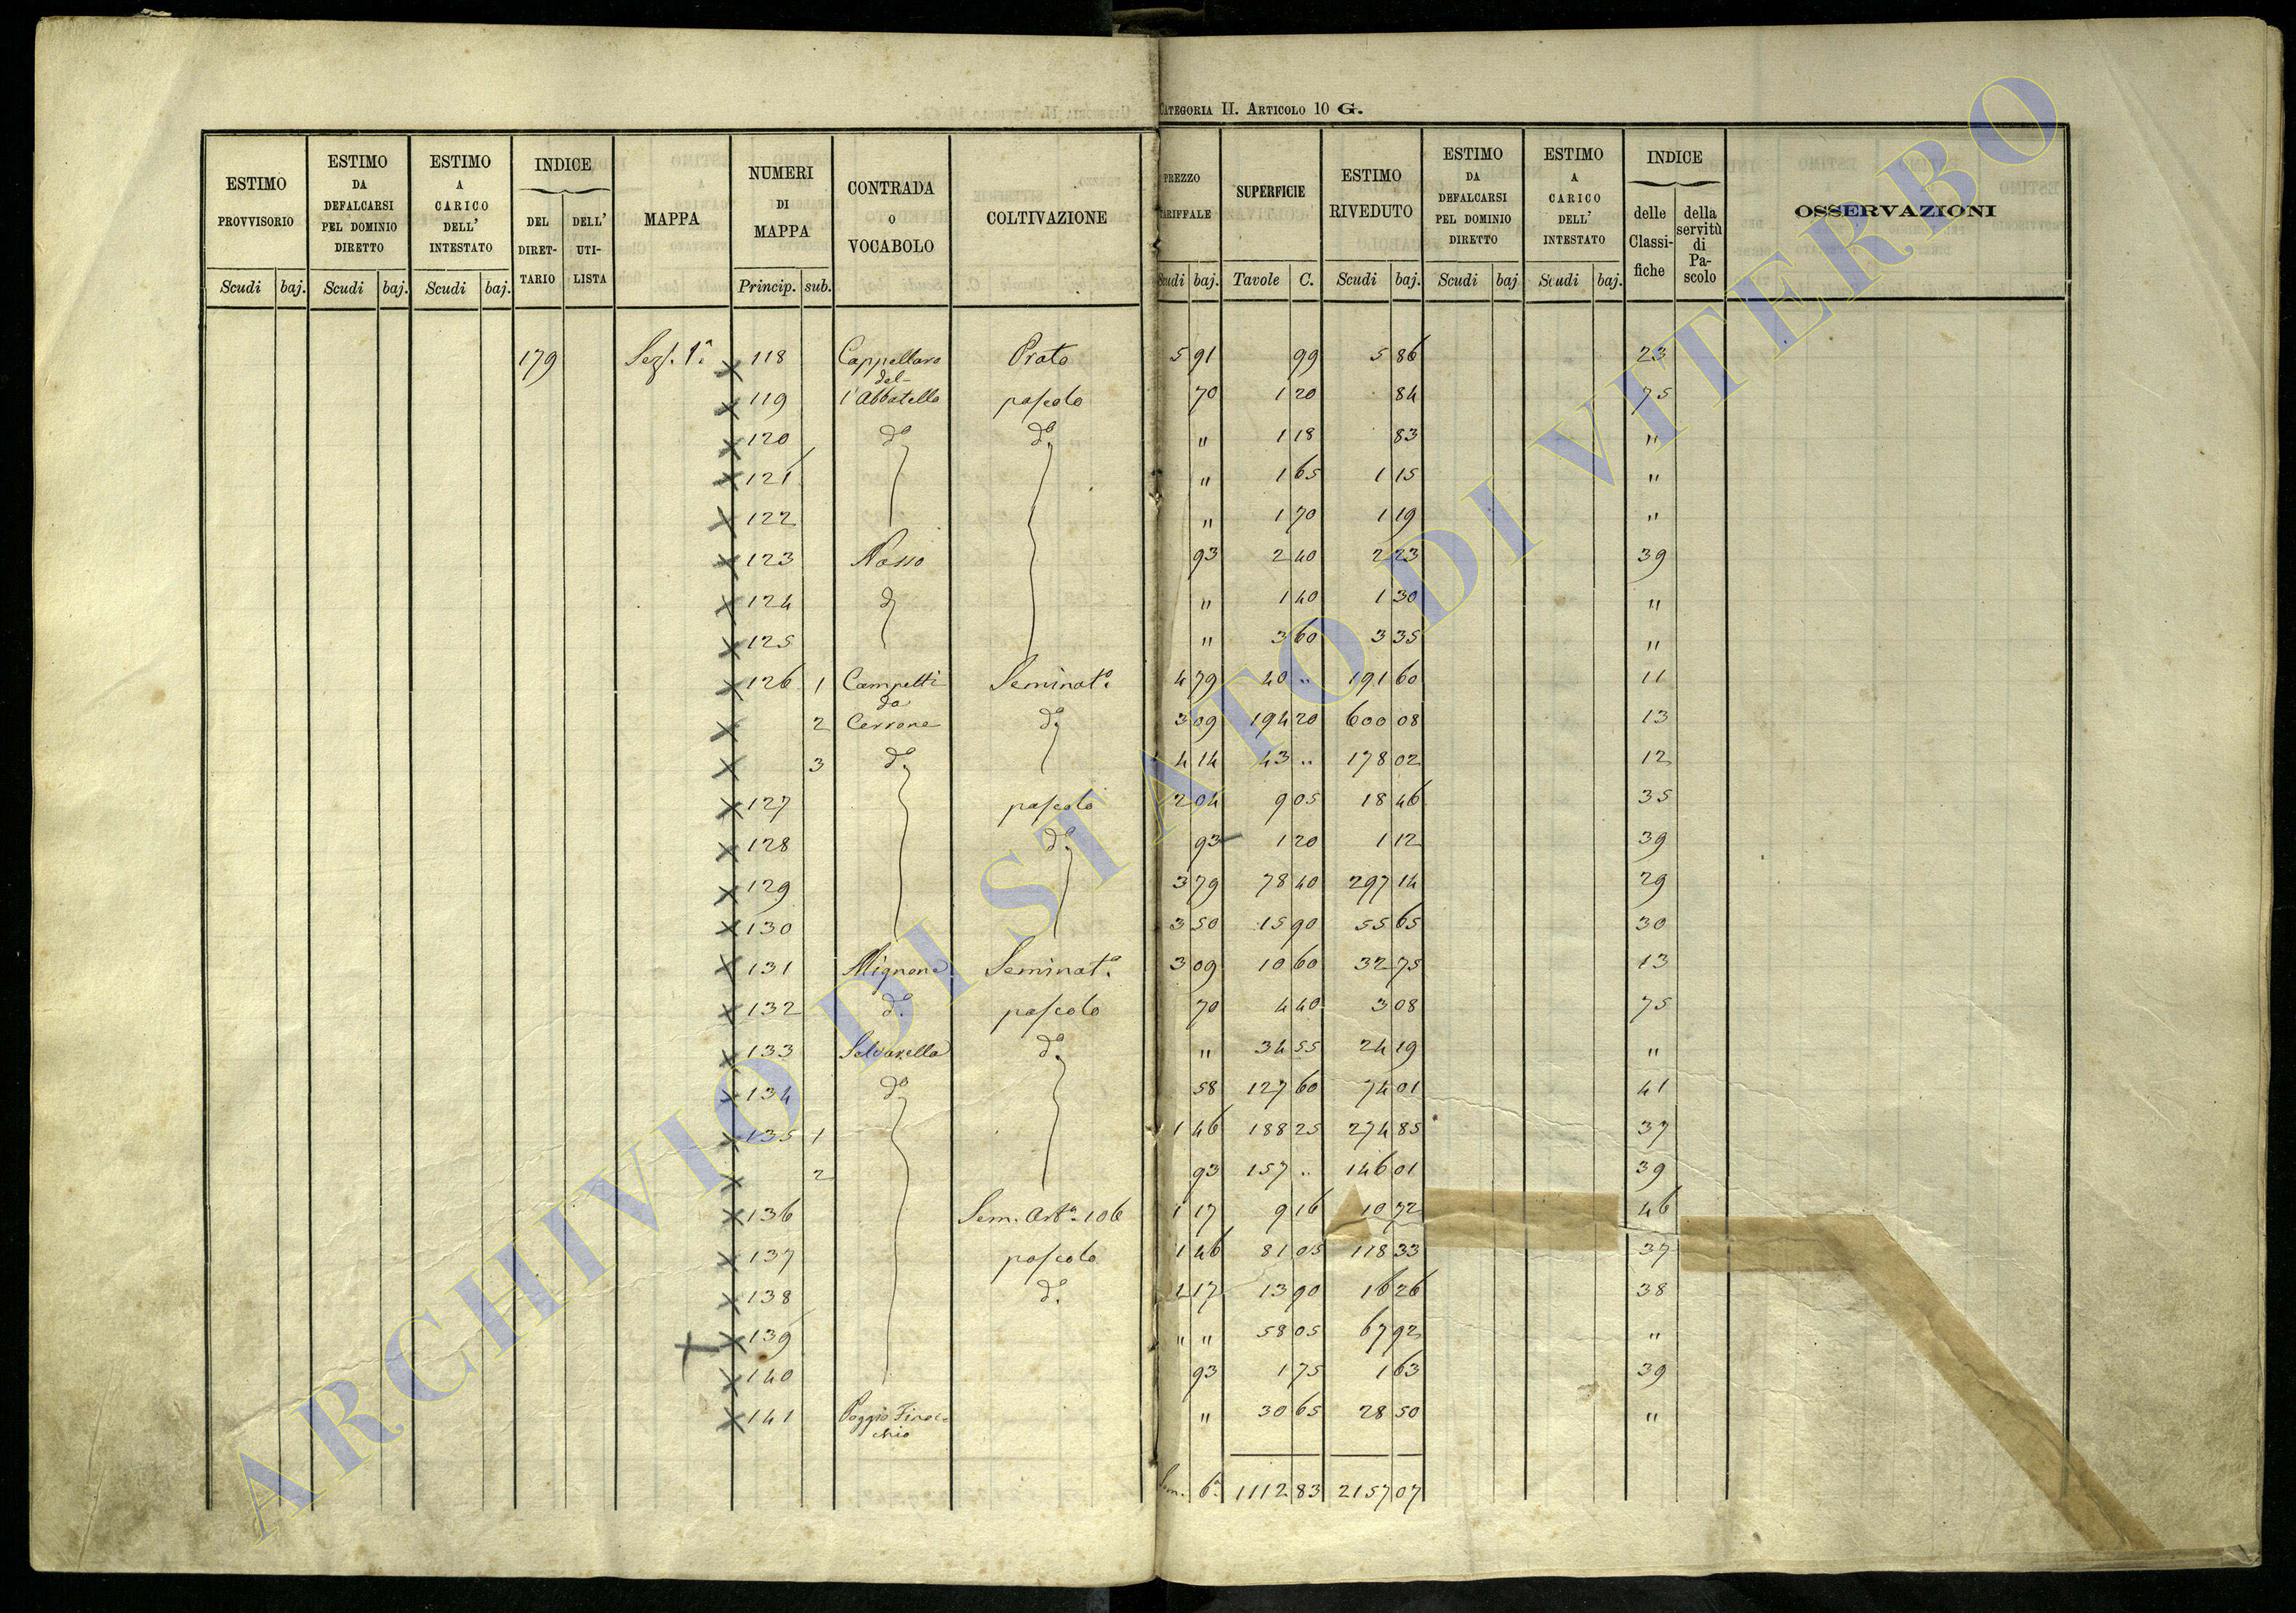 CATEGORIA II. ARTICOLO 10 G.
ESTIMO PROVVISORIO Scudi baj.
ESTIMO DA DEFALCARSI PEL DOMINIO DIRETTO Scudi baj.
ESTIMO A CARICO DELL' INTESTATO Scudi baj.
INDICE DEL DIRETTARIO DELL' UTILISTA
MAPPA
NUMERI DI MAPPA Princip. sub.
CONTRADA O VOCABOLO
COLTIVAZIONE
PREZZO TARIFFALE Scudi baj.
SUPERFICIE Tavole C.
ESTIMO RIVEDUTO Scudi baj.
ESTIMO DA DEFALCARSI PEL DOMINIO DIRETTO Scudi baj
ESTIMO A CARICO DELL' INTESTATO Scudi baj.
INDICE delle Classifiche della servitù di Pascolo
OSSERVAZIONI
179 Sez. 1ª 118 Cappellaro Prato 5 91 99 5 86 23
del-
119 l'Abbatello pascolo 70 1 20 84 75
120 dº dº " 1 18 83 "
121 " 1 65 1 15 "
122 " 1 70 1 19 "
123 Nasso 93 2 40 2 23 39
124 d " 1 40 1 30 "
125 " 3 60 3 35 "
126 1 Campetti Seminatº 4 79 40 .. 191 60 11
da
2 Cerrone dº 3 09 194 20 600 08 13
3 dº 4 14 43 .. 178 02 12
127 pascolo 2 04 9 05 18 46 35
128 dº 93 1 20 1 12 39
129 3 79 78 40 297 14 29
130 3 50 15 90 55 65 30
131 Mignone Seminatº 3 09 10 60 32 75 13
132 dº pascolo 70 4 40 3 08 75
133 Selvarella dº " 34 55 24 19 "
134 dº 58 127 60 74 01 41
135 1 1 46 188 25 274 85 37
2 93 157 .. 146 01 39
136 Sem. Artº 106 1 17 9 16 10 72 46
137 pascolo 1 46 81 05 118 33 37
138 dº 1 17 13 90 16 26 38
139 " " 58 05 67 92 "
140 93 1 75 1 63 39
141 Poggio Finoc- " 30 65 28 50 "
chio
Som. 6ª 1112 83 2157 07
ARCHIVIO DI STATO DI VITERBO